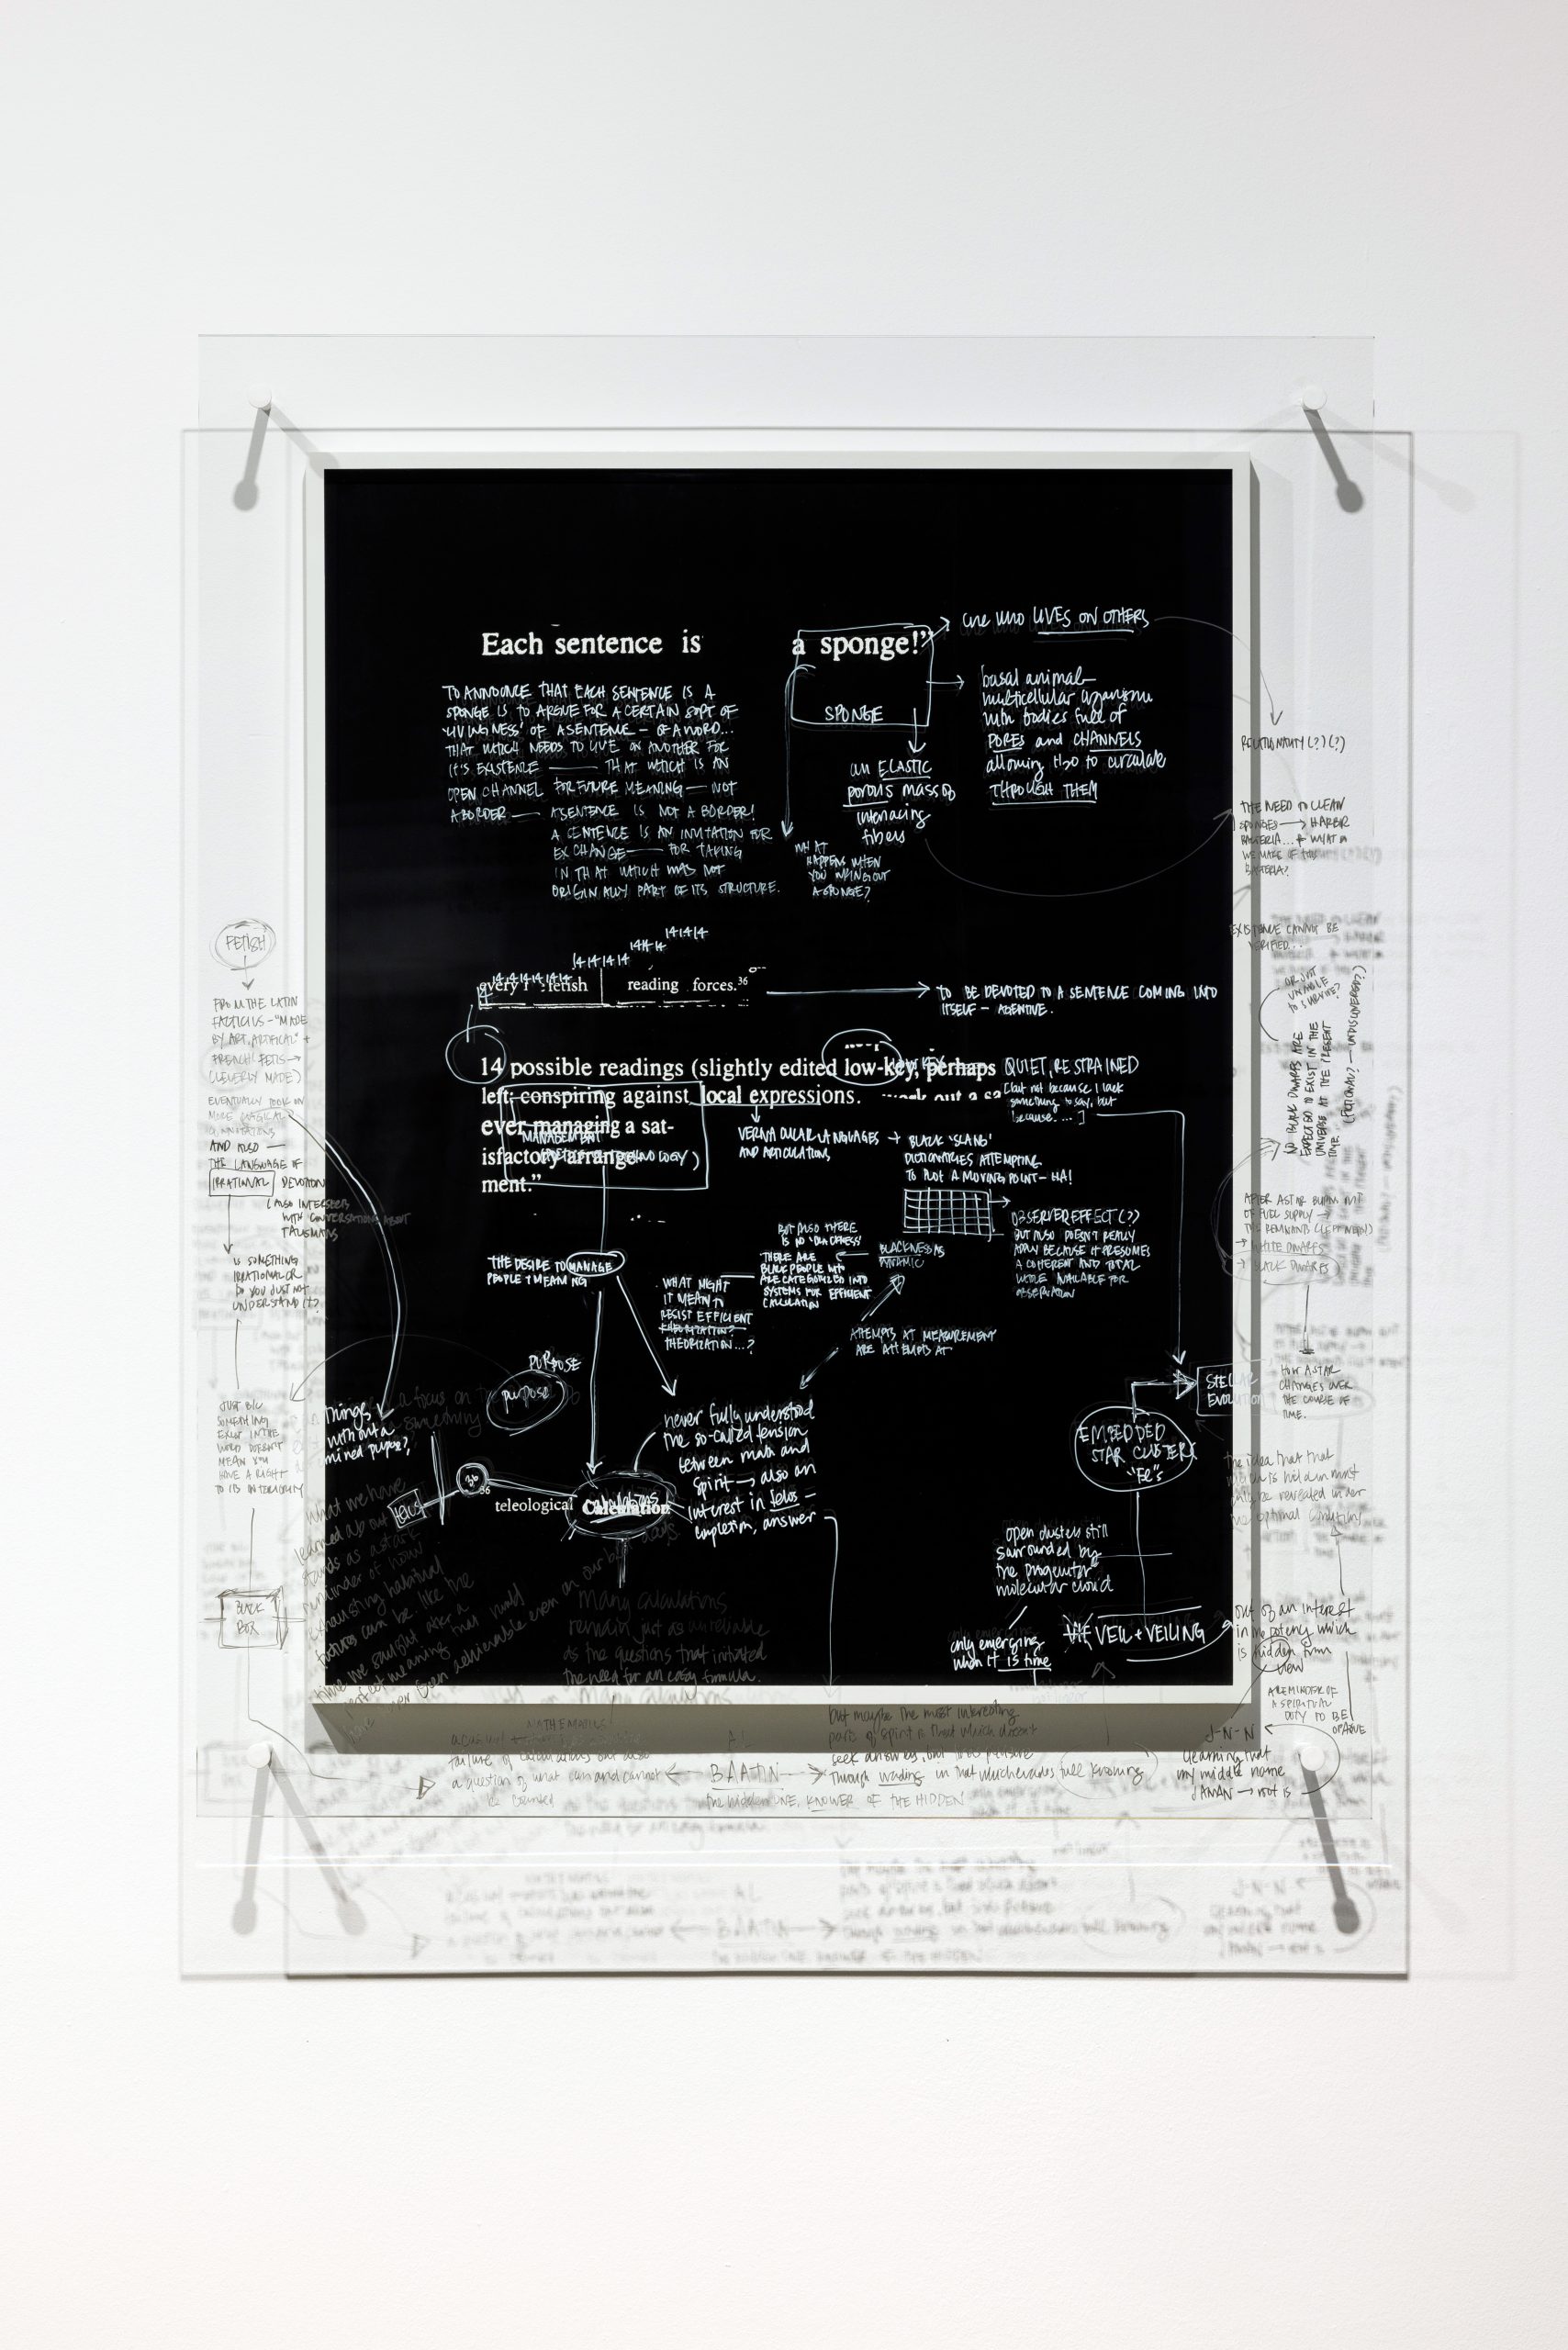 Each sentence is a sponge!"
SPONGE
one who LIVES ON OTHERS
basal animal—
multicellular organism
with bodies full of
PORES and CHANNELS
allowing H2O to circulate
THROUGH THEM
an ELASTIC
porous mass of
interlacing
fibers
WHAT
HAPPENS WHEN
YOU WRING OUT
A SPONGE?
TO ANNOUNCE THAT EACH SENTENCE IS A
SPONGE IS TO ARGUE FOR A CERTAIN SORT OF
'LIVINGNESS' OF A SENTENCE — OF A WORD...
THAT WHICH NEEDS TO LIVE ON ANOTHER FOR
IT'S EXISTENCE — THAT WHICH IS AN
OPEN CHANNEL FOR FUTURE MEANING — NOT
A BORDER — A SENTENCE IS NOT A BORDER!
A SENTENCE IS AN INVITATION FOR
EXCHANGE — FOR TAKING
IN THAT WHICH WAS NOT
ORIGINALLY PART OF ITS STRUCTURE.
RELATIONALITY (?) (?)
THE NEED TO CLEAN
SPONGES → HARBOR
BACTERIA... + WHAT DO
WE MAKE OF THIS
BACTERIA?
EXISTENCE CANNOT BE
VERIFIED...
OR JUST
UNABLE
TO SURVIVE?
NO BLACK DWARFS ARE
EXPECTED TO EXIST IN THE
UNIVERSE AT THE PRESENT
TIME
(FICTIONAL? — UNDISCOVERED?)
14 14 14
14 14 14
14 14 14 14
14 14 14 14 14 14
every fetish reading forces.36
TO BE DEVOTED TO A SENTENCE COMING INTO
ITSELF — AGENTIVE.
14 possible readings (slightly edited low-key, perhaps
left, conspiring against local expressions.
work out a sa
ever managing a sat-
isfactory arrange-
ment."
MANAGEMENT
QUIET, RESTRAINED
[but not because I lack
something to say, but
because....]
VERNACULAR LANGUAGES
AND ARTICULATIONS
BLACK 'SLANG'
DICTIONARIES ATTEMPTING
TO PLOT A MOVING POINT — HA!
OBSERVER EFFECT (?)
BUT ALSO DOESN'T REALLY
APPLY BECAUSE IT PRESUMES
A COHERENT AND TOTAL
WHOLE AVAILABLE FOR
OBSERVATION
BLACKNESS AS
DYNAMIC
BUT ALSO THERE
IS NO 'BLACKNESS'
THERE ARE
BLACK PEOPLE WHO
ARE CATEGORIZED INTO
SYSTEMS FOR EFFICIENT
CALCULATION
WHAT MIGHT
IT MEAN TO
RESIST EFFICIENT
THEORIZATION?
THEORIZATION...?
ATTEMPTS AT MEASUREMENT
ARE ATTEMPTS AT
THE DESIRE TO MANAGE
PEOPLE + MEANING
PURPOSE
purpose
FETISH
FROM THE LATIN
FACTICIUS — "MADE
BY ART, ARTIFICIAL" +
FRENCH FETIS →
(CLEVERLY MADE)
EVENTUALLY TOOK ON
MORE MAGICAL
CONNOTATIONS
AND ALSO —
THE LANGUAGE OF
IRRATIONAL DEVOTION
(ALSO INTERSECTS
WITH CONVERSATIONS ABOUT
TALISMANS
IS SOMETHING
IRRATIONAL OR
DO YOU JUST NOT
UNDERSTAND IT?
JUST B/C
SOMETHING
EXIST IN THE
WORLD DOESN'T
MEAN YOU
HAVE A RIGHT
TO ITS INTERIORITY
BLACK
BOX
things
without a
telos
36
teleological
Calculation
never fully understood
the so-called tension
between math and
spirit → also an
interest in telos —
completion, answer
AFTER A STAR BURNS OUT
OF FUEL SUPPLY →
THE REMNANTS
→ WHITE DWARFS
→ BLACK DWARFS
HOW A STAR
CHANGES OVER
THE COURSE OF
TIME.
STELLAR
EVOLUTION
EMBEDDED
STAR CLUSTERS
"EC"s
open clusters still
surrounded by
the progenitor
molecular cloud
only emerging
when it is time
VEIL + VEILING
the idea that that
which is hidden must
only be revealed under
the optimal conditions
out of an interest
in the potency which
is hidden from
view
A REMINDER OF
A SPIRITUAL
DUTY TO BE
OPAQUE
J-N-N
learning that
my middle name
JANAN → root is
what we have
learned about
stands as a stark
reminder of how
exhausting habitual
futures can be. like the
Many calculations
remain just as unreliable
as the questions that initiated
the need for an easy formula.
MATHEMATICS
failure of calculations but also
a question of what can and cannot
be counted
AL
BAATIN
the hidden one, KNOWER OF THE HIDDEN
but maybe the most interesting
part of spirit is that which doesn't
seek answers, but finds pleasure
through wading in that which evades full knowing